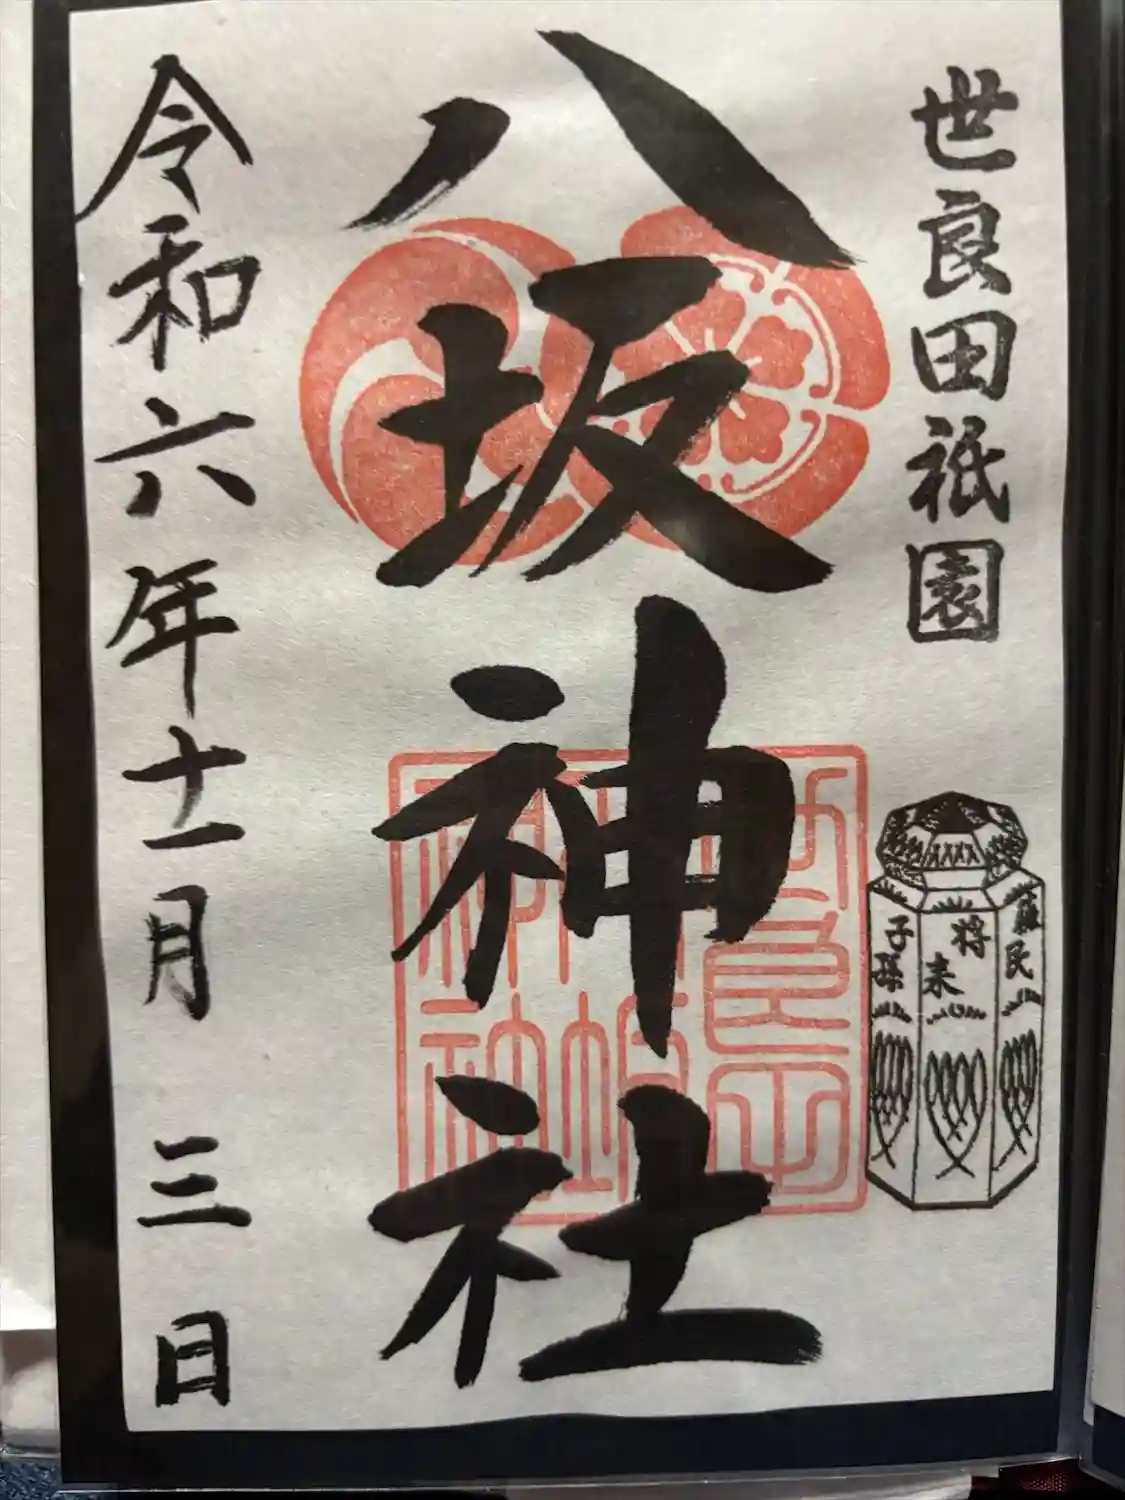 世良田祇園
八坂神社
蘇民
将来
子孫
令和六年十一月三日